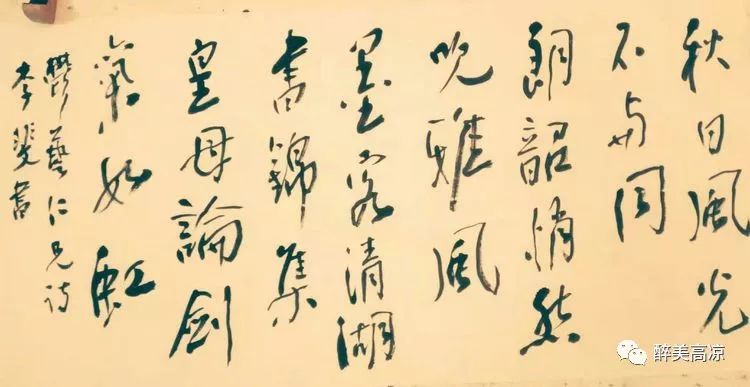 秋日風光
不与同
朗韶悄然
吹雅風
墨客清湖
書錦集
皇母論劍
氣如虹
鬱藝仁兄诗
李斐書
醉美高凉